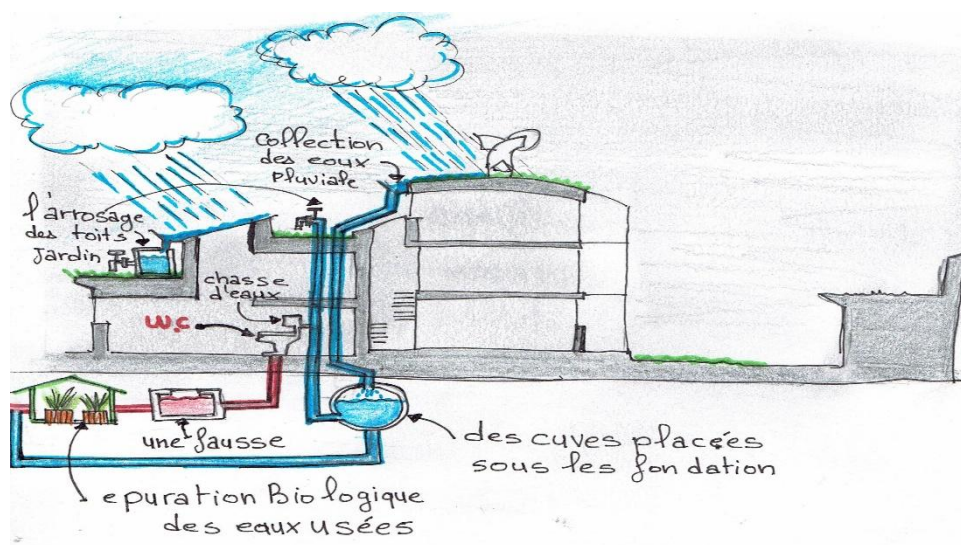 collection
des eaux
pluviale
l'arrosage
des toits
Jardin
chasse
d'eaux
W.C
une fausse
des cuves placées
sous les fondation
epuration Biologique
des eaux usées